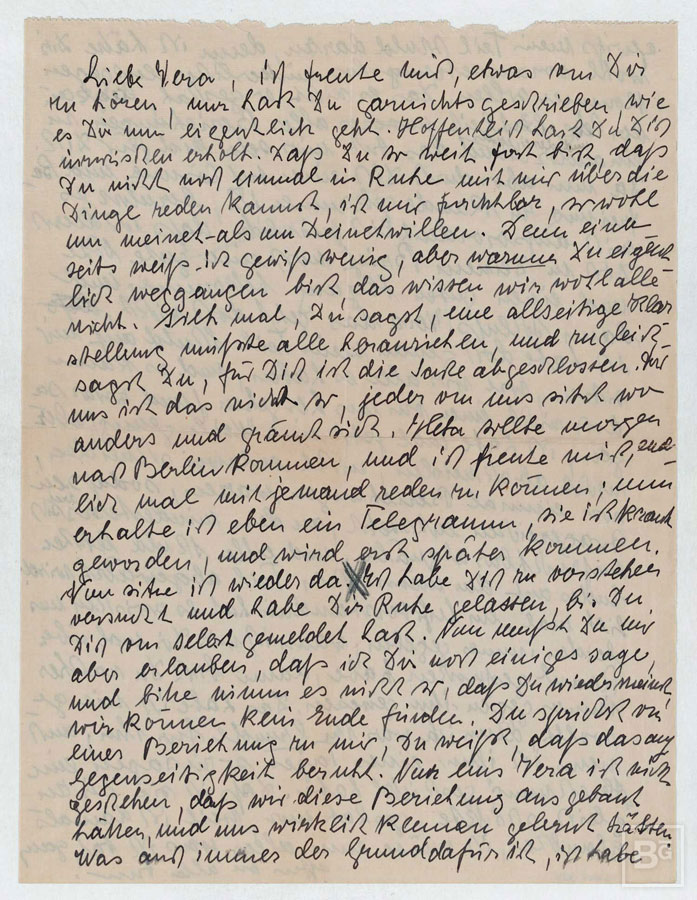 Liebe Vera, ich freute mich, etwas von Dir
zu hören, nur hast Du garnichts geschrieben, wie
es Dir nun eigentlich geht. Hoffentlich hast Du Dich
inzwischen erholt. Daß Du so weit fort bist, daß
Du nicht noch einmal in Ruhe mit mir über die
Dinge reden kannst, ist mir furchtbar, sowohl
um meinet- als um Deinetwillen. Denn einer-
seits weiß ich gewiß wenig, aber warum Du eigent
lich weggangen bist, das wissen wir wohl alle
nicht. Sieh mal, Du sagst, eine allseitige Klar
stellung müßte alle heranziehen, und zugleich
sagst Du, für Dich ist die Sache abgeschlossen. Für
uns ist das nicht so, jeder von uns sitzt wo
anders und grämt sich. Meta sollte morgen
nach Berlin kommen, und ich freute mich, end-
lich mal mit jemand reden zu können; nun
erhalte ich eben ein Telegramm, sie ist krank
geworden, und wird erst später kommen.
Nun sitze ich wieder da. Ich habe Dich zu verstehen
versucht und habe Dir Ruhe gelassen, bis Du
Dich von selbst gemeldet hast. Nun mußt Du mir
aber erlauben, daß ich Dir noch einiges sage,
und bitte nimm es nicht so, daß Du wieder meinst
wir können kein Ende finden. Du sprichst von
einer Beziehung zu mir, Du weißt, daß das auf
Gegenseitigkeit beruht. Nur eins Vera ist nicht
geschehen, daß wir diese Beziehung ausgebaut
hätten, und uns wirklich kennen gelernt hätten.
Was auch immer der Grund dafür ist, ich habe
BG